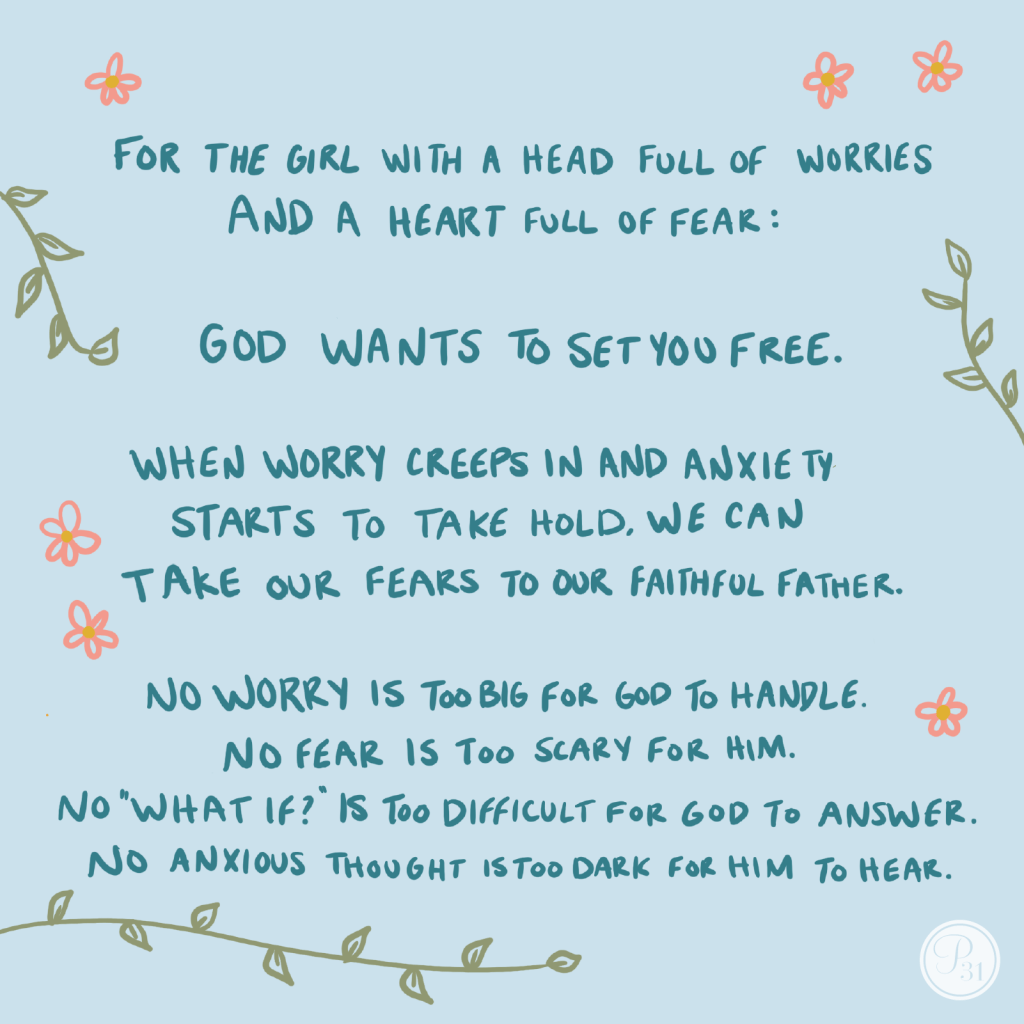 FOR THE GIRL WITH A HEAD FULL OF WORRIES
AND A HEART FULL OF FEAR:
GOD WANTS TO SET YOU FREE.
WHEN WORRY CREEPS IN AND ANXIETY
STARTS TO TAKE HOLD, WE CAN
TAKE OUR FEARS TO OUR FAITHFUL FATHER.
NO WORRY IS TOO BIG FOR GOD TO HANDLE.
NO FEAR IS TOO SCARY FOR HIM.
NO "WHAT IF?" IS TOO DIFFICULT FOR GOD TO ANSWER.
NO ANXIOUS THOUGHT IS TOO DARK FOR HIM TO HEAR.
P31